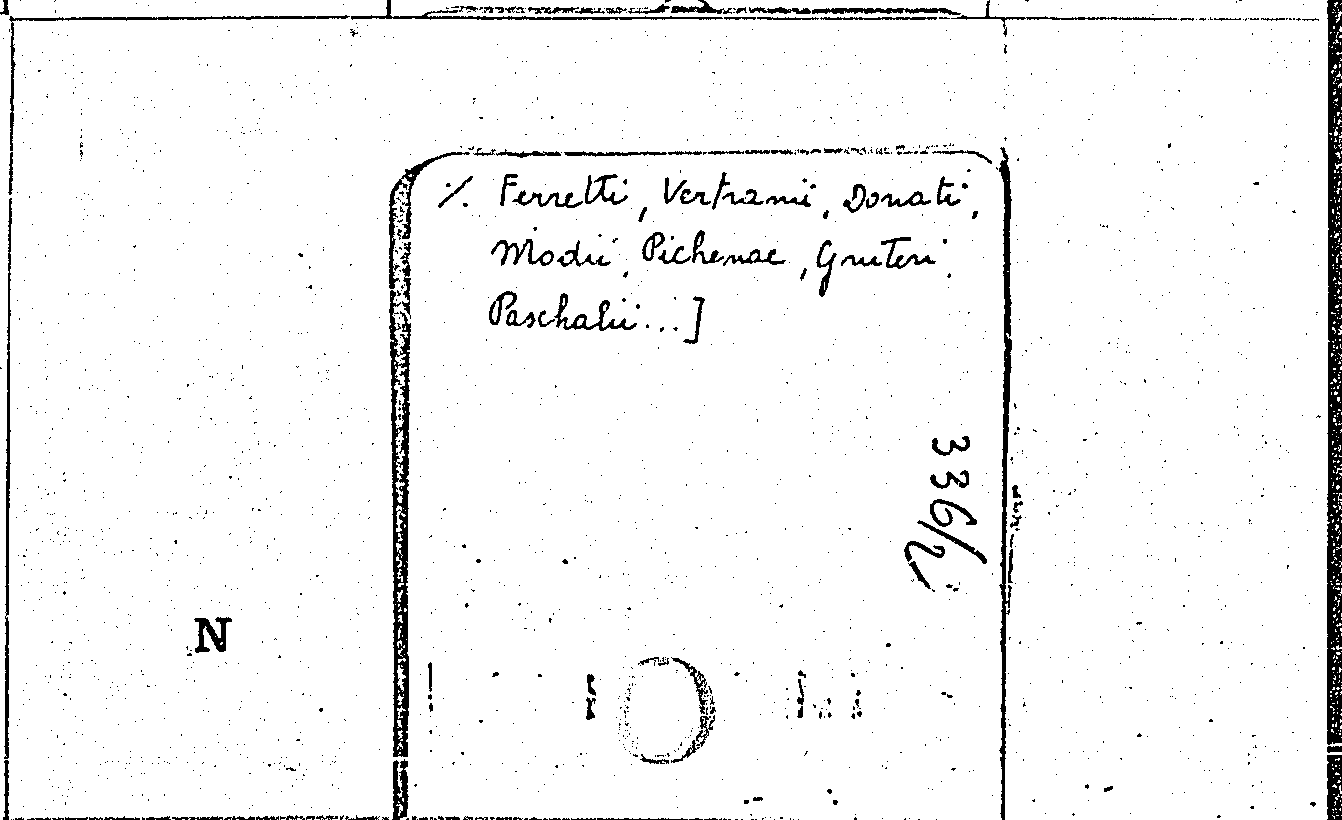 ./. Ferretti, Vertranii, Donati,
Modii, Pichenae, Gruteri,
Paschalii...]
336/2
N